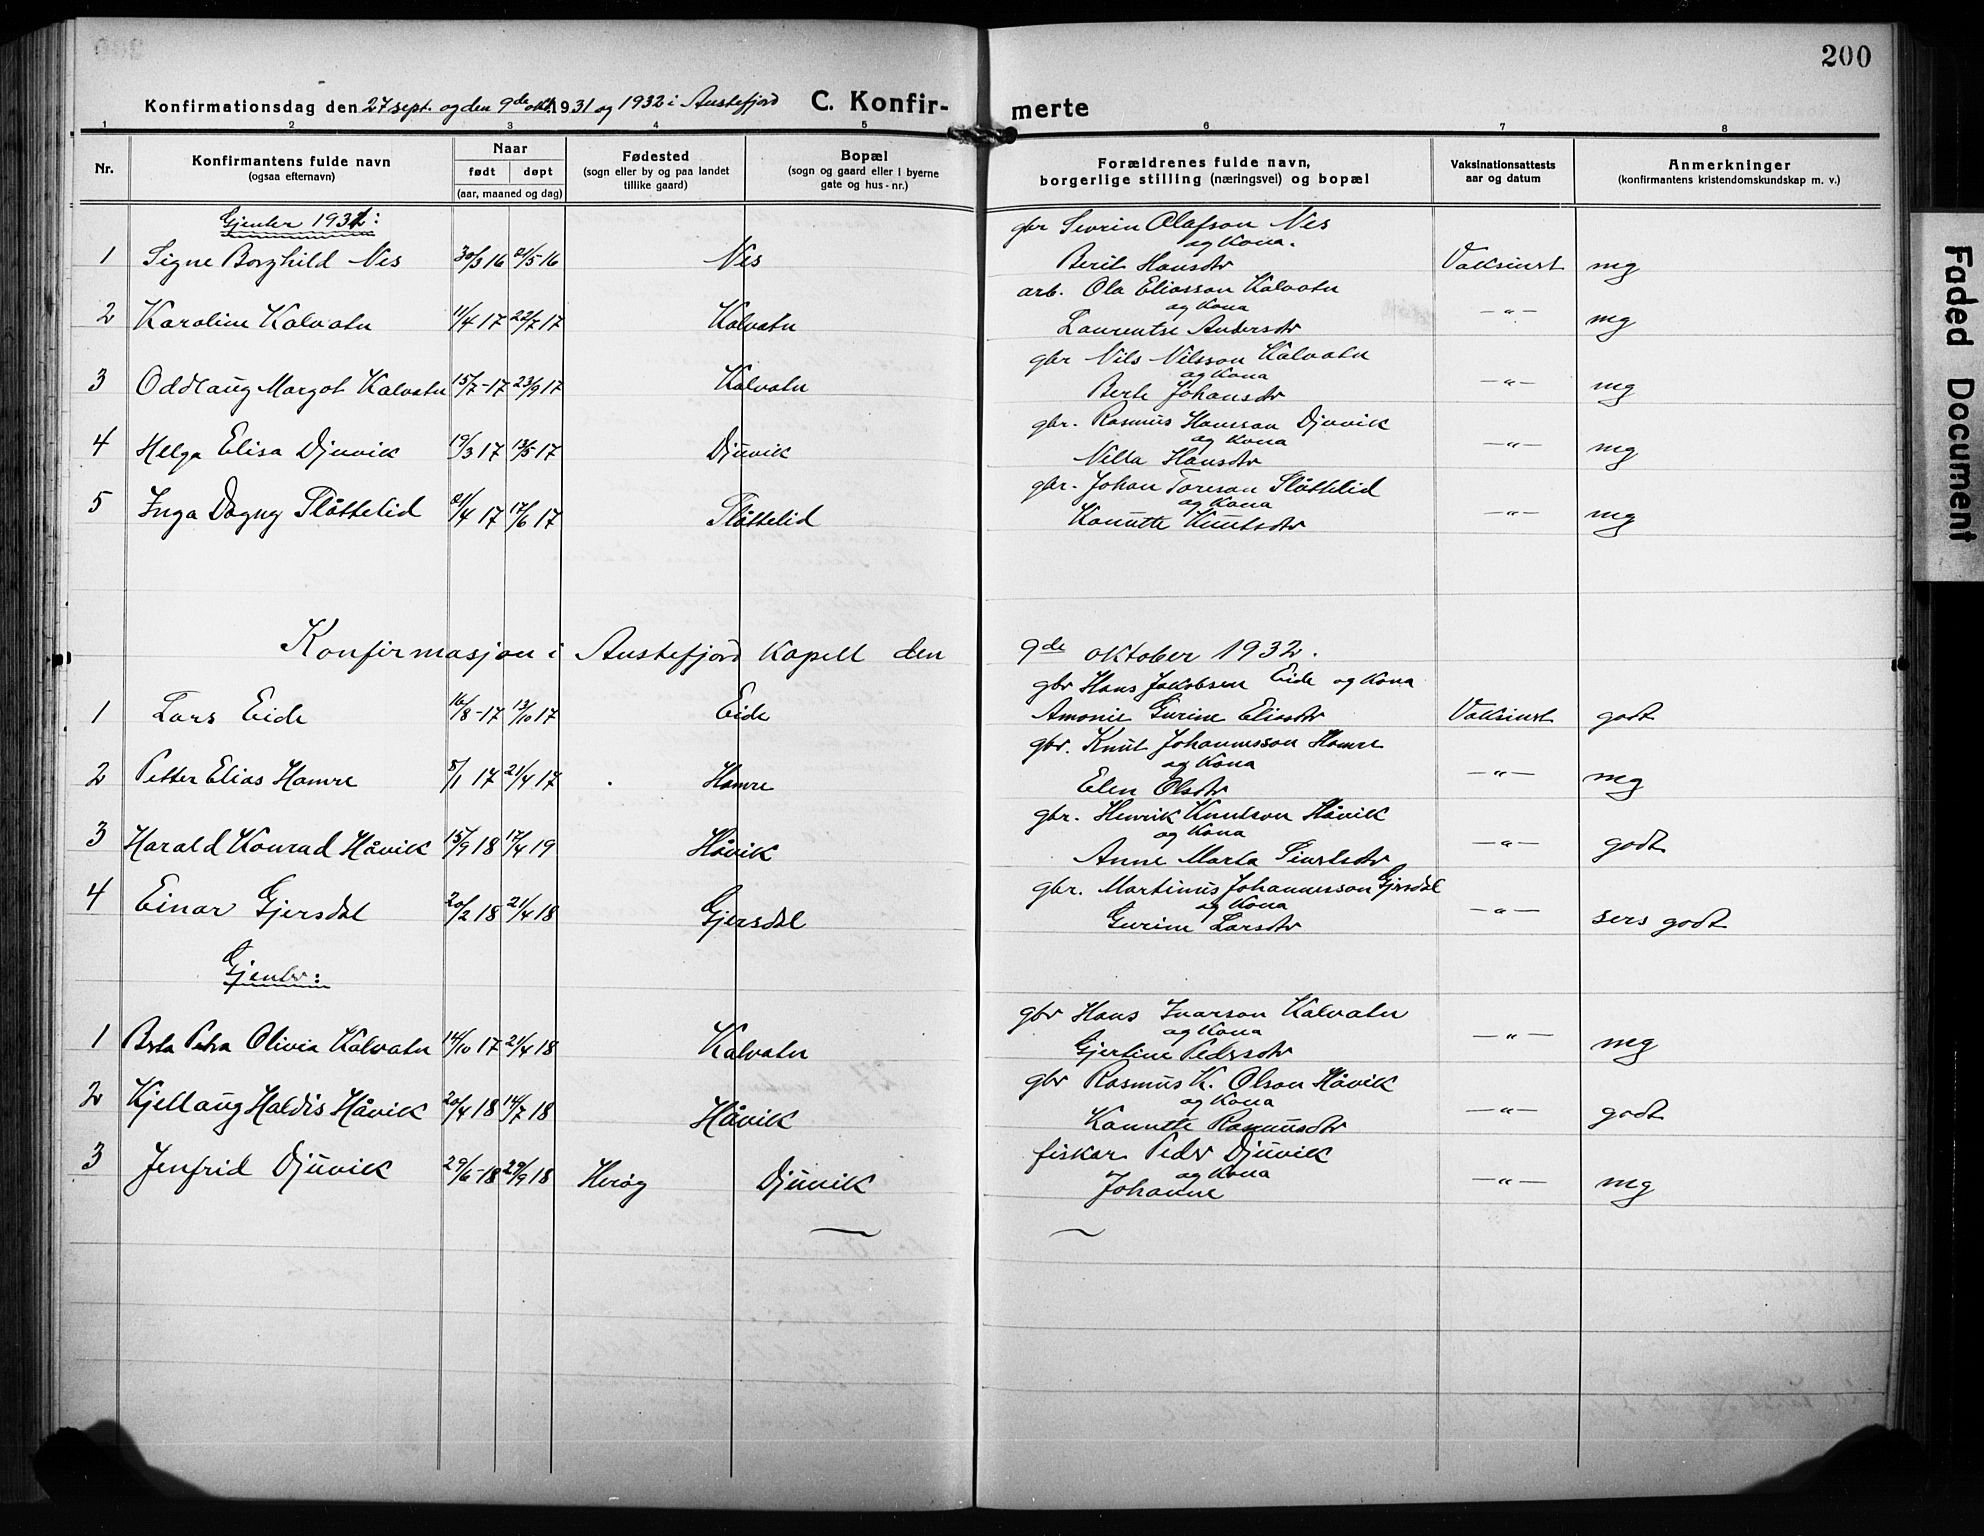 200
Konfirmationsdag den 27 sept. og den 9de okt. 1931 og 1932 i Austefjord C. Konfir- merte
1 2 3 4 5 6 7 8
Nr. Konfirmantens fulde navn (ogsaa efternavn) Naar født døpt (aar, maaned og dag) Fødested (sogn eller by og paa landet tillike gaard) Bopæl (sogn og gaard eller i byerne gate og hus-nr.) Forældrenes fulde navn, borgerlige stilling (næringsvei) og bopæl Vaksinationsattests aar og datum Anmerkninger (konfirmantens kristendomskundskap m. v.)
Gjenter 1931:
gbr Sevrin Olafson Nes
og Kona.
1 Signe Borghild Nes 30/3 16 21/5 16 Nes Berit Hansdtr Vaksinert mg
arb. Ola Eliasson Kalvatn
og Kona
2 Karoline Kalvatn 11/4 17 22/7 17 Kalvatn Laurentse Andersdtr —"— mg
gbr Nils Nilsson Kalvatn
og Kona
3 Oddlaug Margot Kalvatn 15/7-17 23/9 17 Kalvatn Berte Johansdtr —"— mg
gbr. Rasmus Hansson Djuvik
og Kona
4 Helga Elisa Djuvik 19/3 17 13/5 17 Djuvik Nella Hansdtr —"— mg
gbr. Johan Toreson Slåttelid
og Kona
5 Inga Dagny Slåttelid 21/4 17 17/6 17 Slåttelid Kanutte Knutsdtr —"— mg
Konfirmasjon i Austefjord Kapell den 9de oktober 1932.
gbr Hans Jakobsen Eide og Kona
1 Lars Eide 16/8-17 13/10 17 Eide Amonie Gurine Eliasdtr Vaksinert godt
gbr. Knut Johannesson Hamre
og Kona
2 Petter Elias Hamre 8/1 17 21/4 17 Hamre Elen Olsdtr —"— mg
gbr. Henrik Knutson Håvik
og Kona
3 Harald Konrad Håvik 15/9 18 17/4 19 Håvik Anne Marta Sivertsdtr —"— godt
gbr. Martinus Johannesson Gjersdal
og Kona
4 Einar Gjersdal 20/2 18 21/4 18 Gjersdal Gurine Larsdtr —"— sers godt
Gjenter:
gbr Hans Ivarson Kalvatn
og Kona
1 Berta Petra Olivia Kalvatn 14/10 17 21/4 18 Kalvatn Gjertine Pedersdtr —"— mg
gbr Rasmus K. Olson Håvik
og Kona
2 Kjellaug Haldis Håvik 20/4 18 14/7 18 Håvik Kanutte Rasmusdtr —"— godt
fiskar Peder Djuvik
og Kona
3 Jenfrid Djuvik 29/6-18 29/9 18 Herøy Djuvik Johanne —"— mg
Faded Document